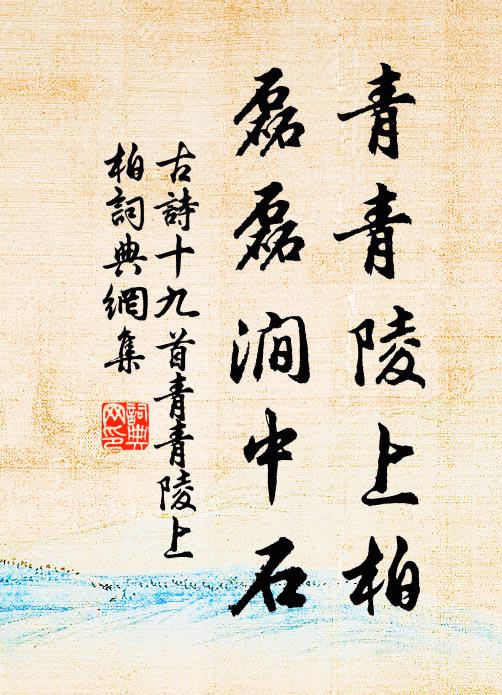 青青陵上柏
磊磊澗中石
古詩十九首青青陵上
柏詞典網集
詞典
网印